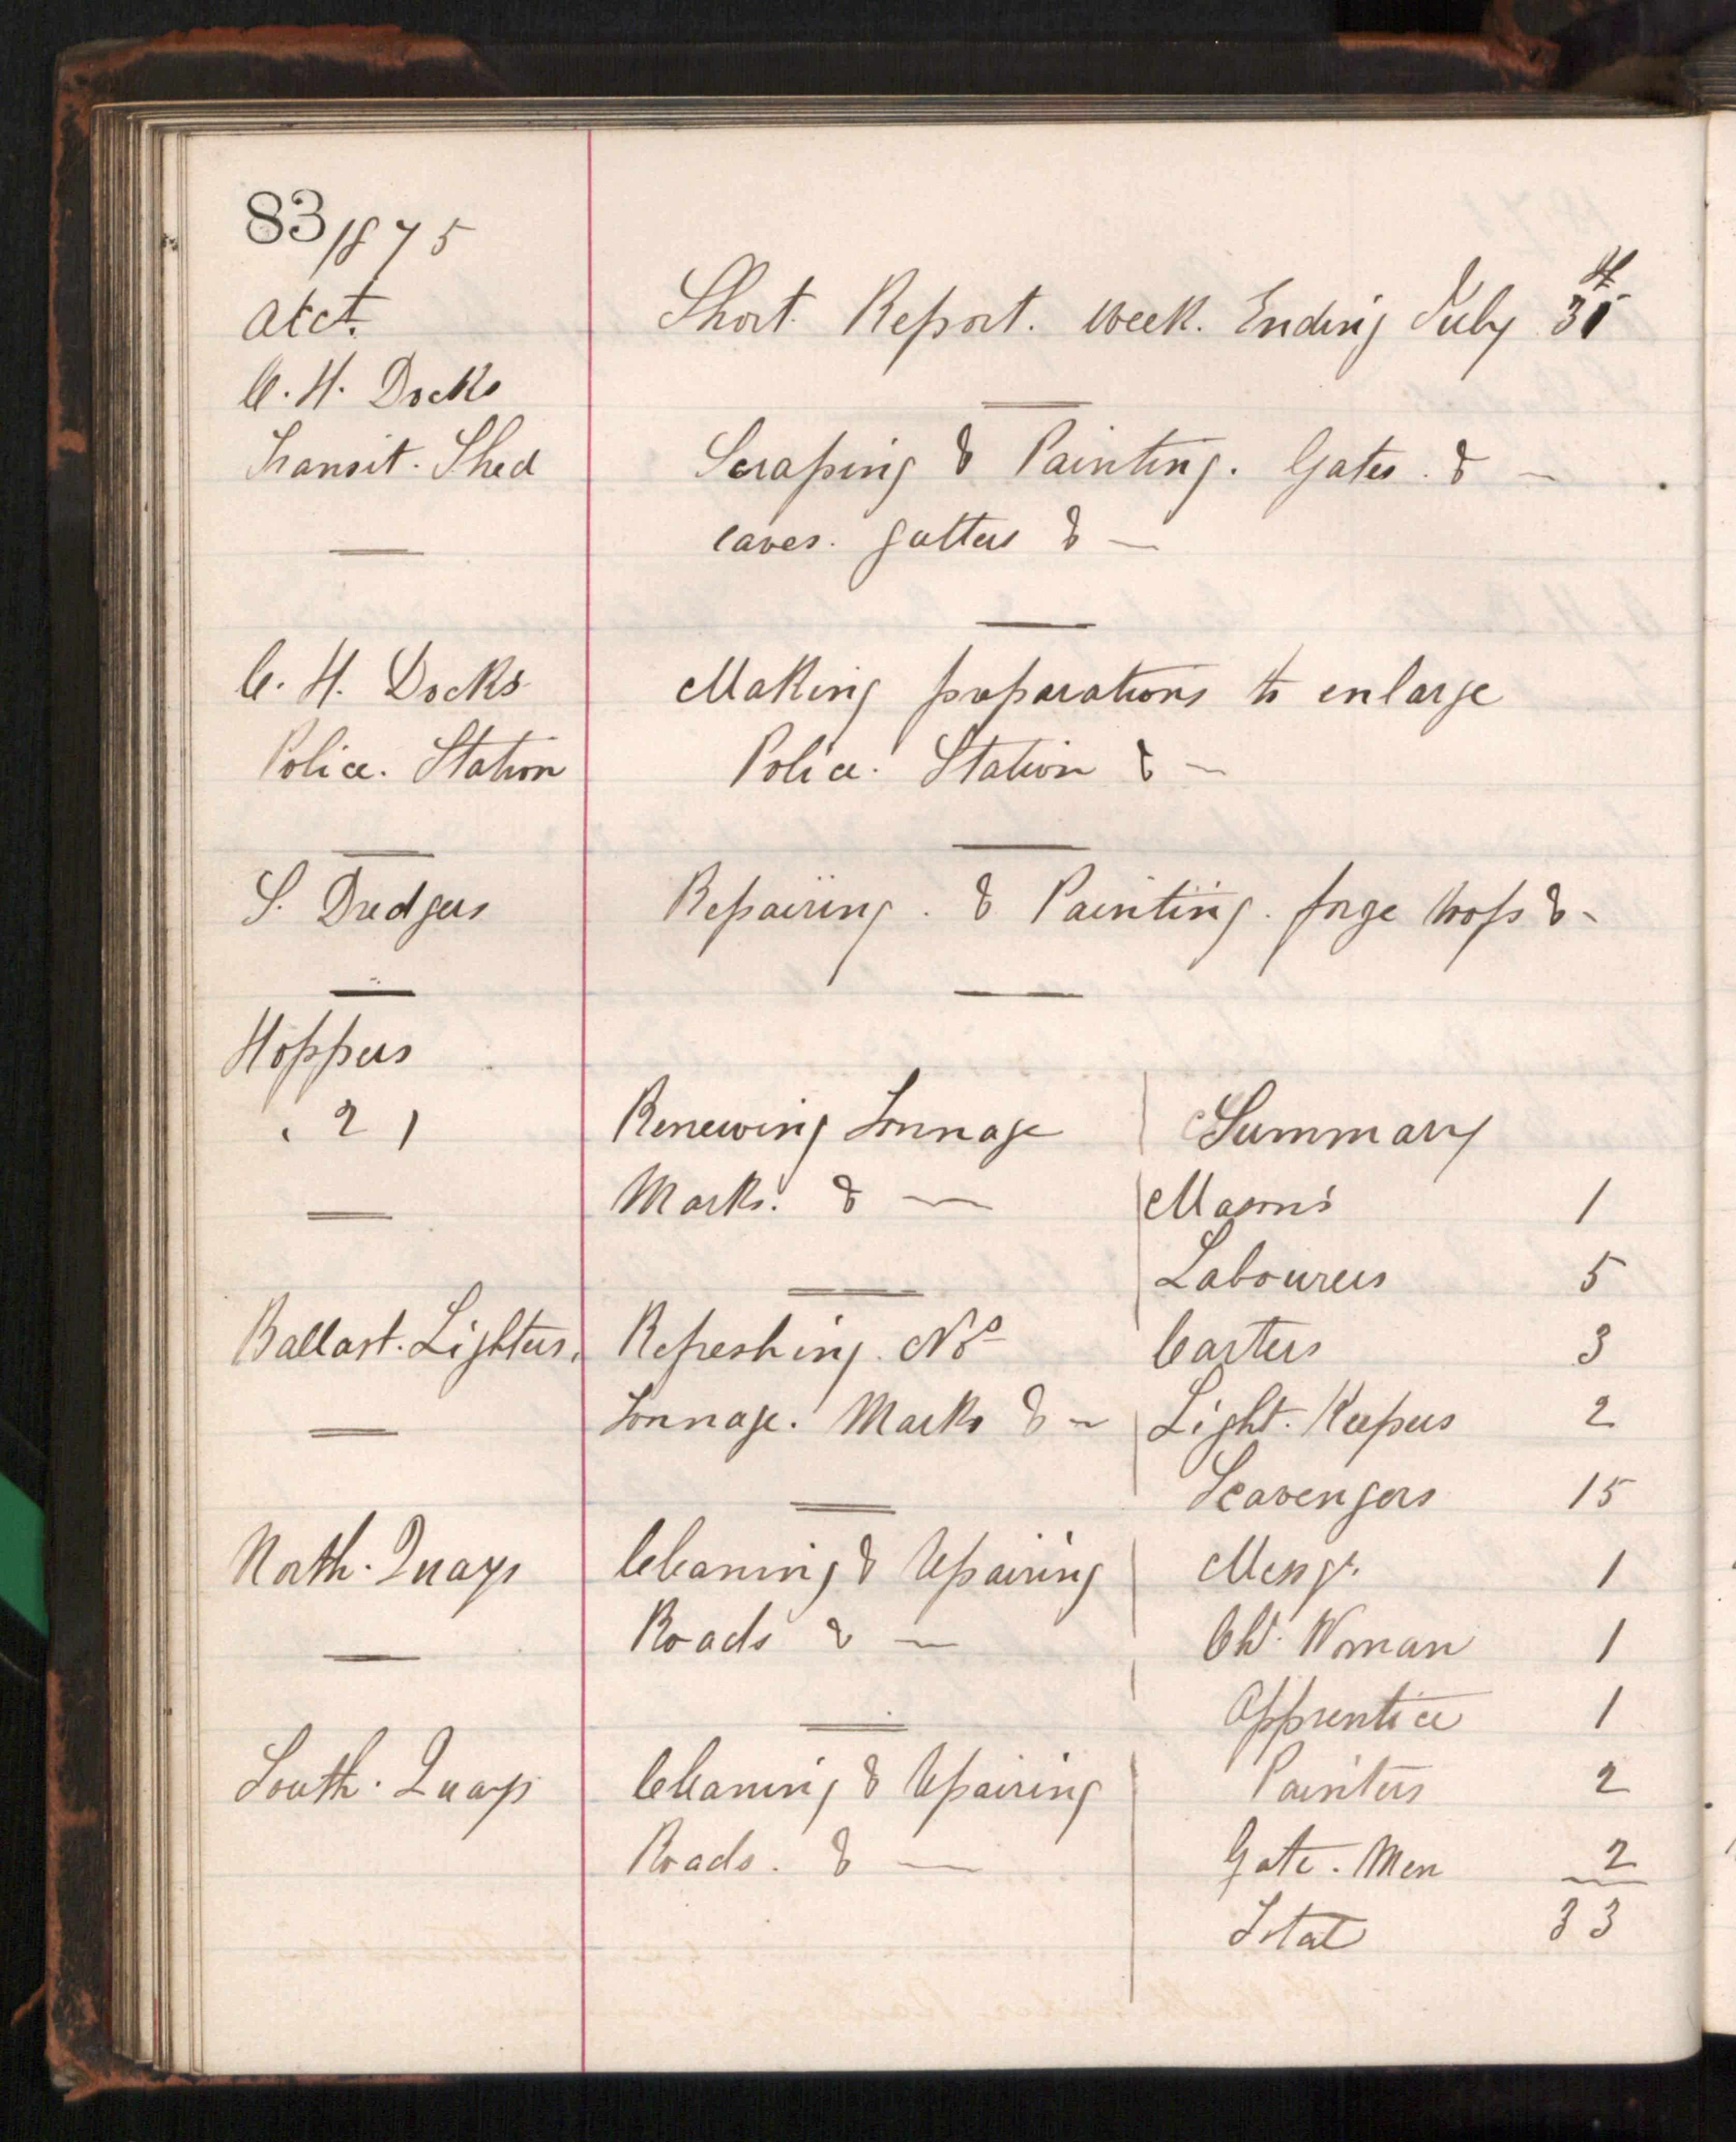 83 1875
Acct.
Short Report. Week. Ending July 31st
C. H. Docks
Transit. Shed
Scraping & Painting. Gates. & —
eaves. gutters & —
C. H. Docks
Police. Station
Making preparations to enlarge
Police. Station & —
S. Dredgers
Repairing. & Painting. forge &-
Hoppers
(2)
Renewing Tonnage
Marks. & —
Ballast. Lighters.
Refreshing. No
Tonnage. Marks & ~
North. Quays
Cleaning & Repairing
Roads & —
South. Quays
Cleaning & Repairing
Roads. & —
Summary
Masons 1
Labourers 5
Carters 3
Light. Keepers 2
Scavengers 15
Messgr. 1
Ch. Woman 1
Apprentice 1
Painters 2
Gate. Men 2
Total 33